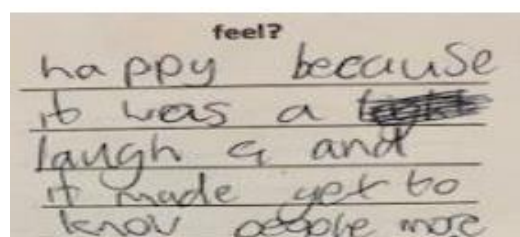 feel?
happy because
it was a
laugh & and
it made get to
know people more